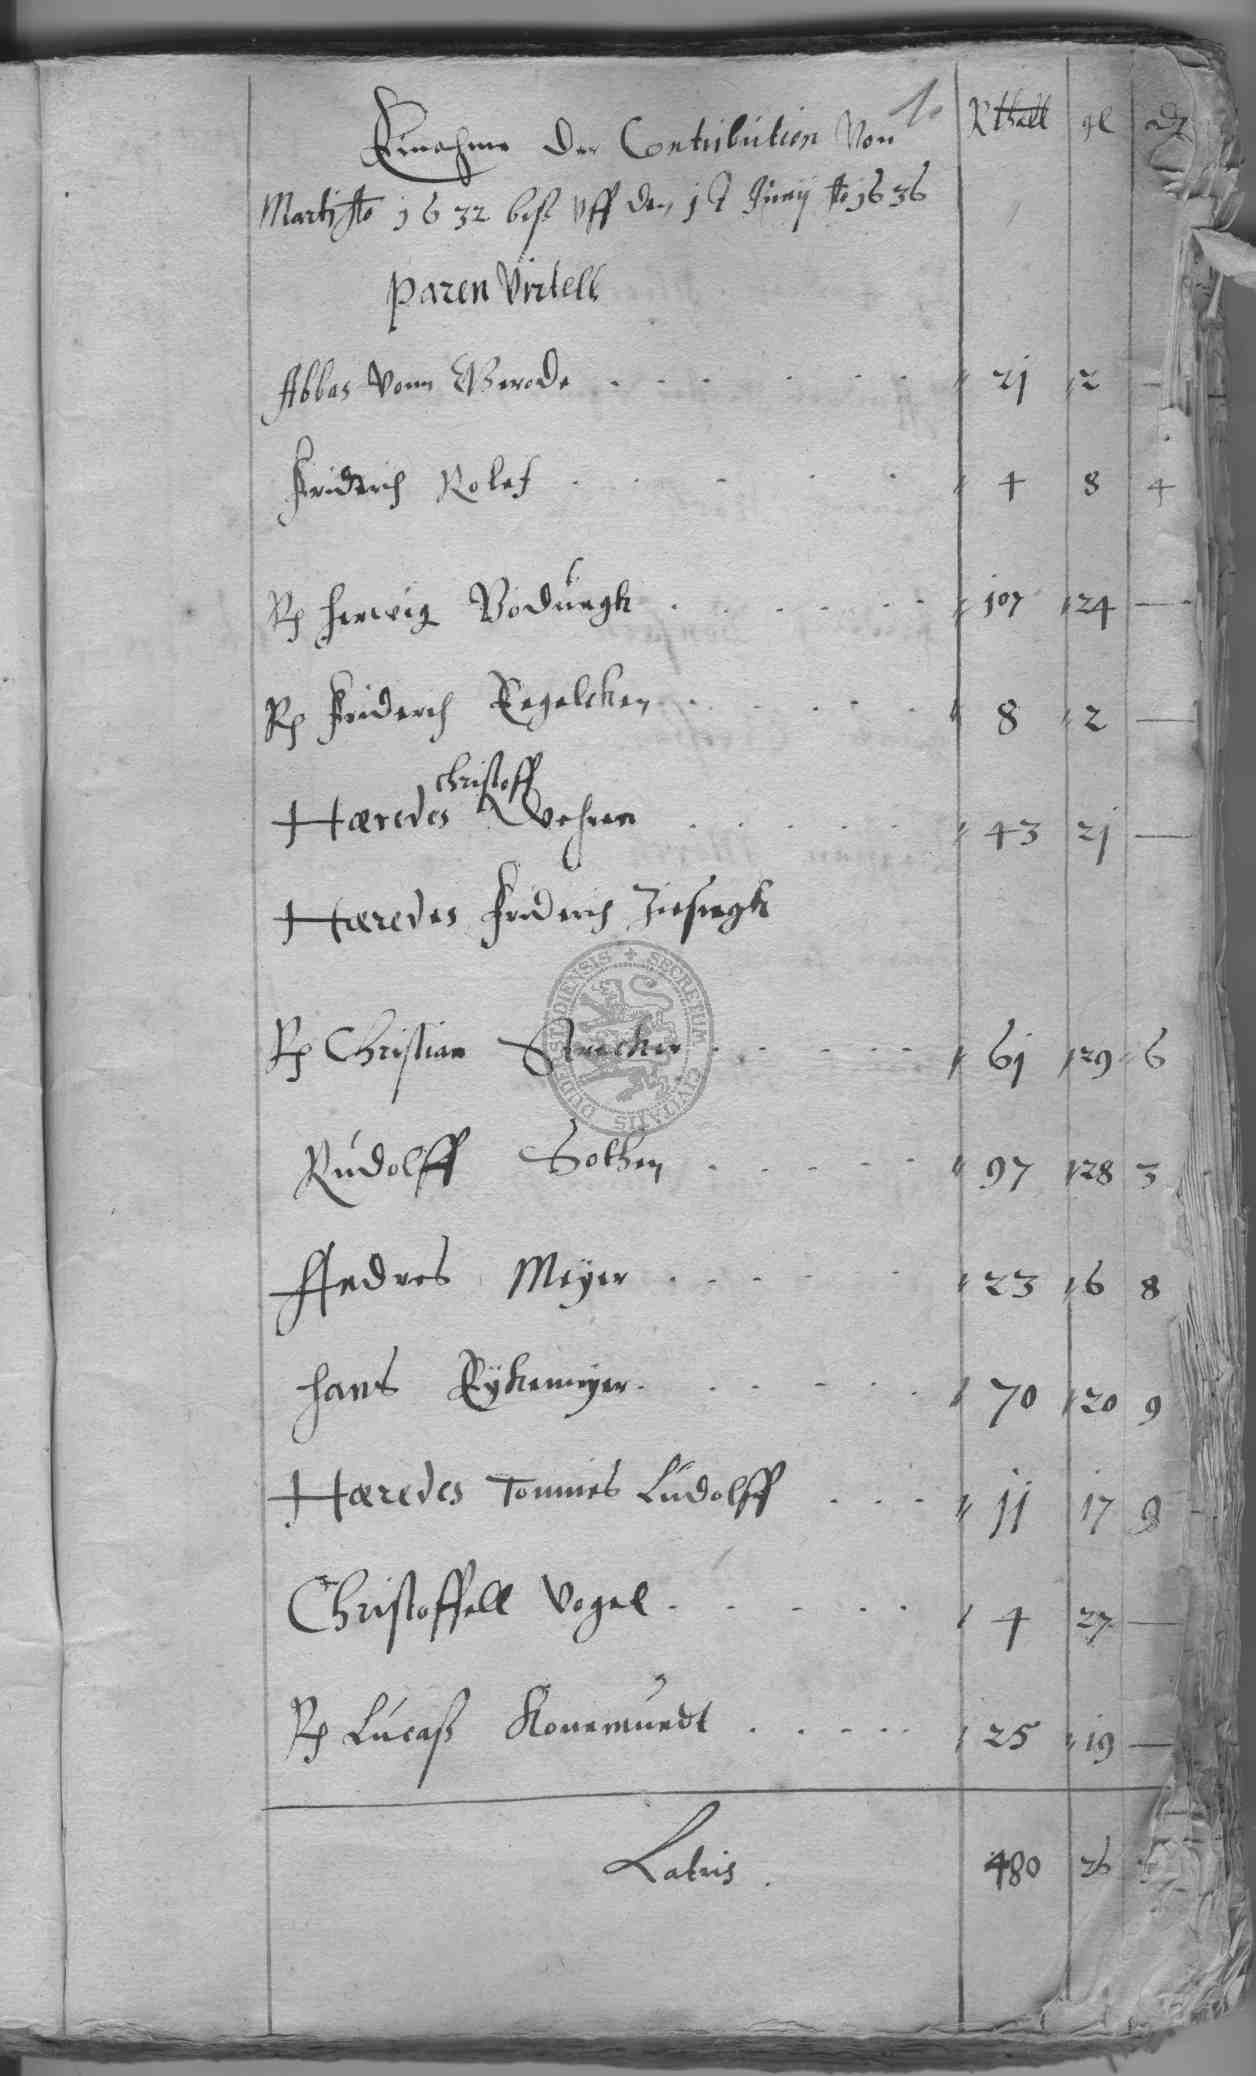 1.
Einahme der Contribution Von
Martj Ao 1632 biß Vff den 1t Junij Ao 1636
Rthall gl
Paren Virtell
Abbas Vonn Gerode 21 2 —
Friderich Rolef 4 8 4
Rp Herwig Bodungk 107 24 —
Rp Friderch Engelcken 8 2 —
Hæredes Christoff Wehren 43 21 —
Hæredes Friderich Ziesingk
Rp Christian Strecker 61 29 6
Rudolff Bothen 97 28 3
Andres Meÿer 23 6 8
Hans Eÿkemeyer 70 20 9
Hæredes Tonnies Ludolff 11 17 9
Christoffell Vogel 4 27 —
Rp Lucaß Konemundt 25 19 —
Latris 480 26
SECRETUM CIVITATIS DUDERSTADIENSIS